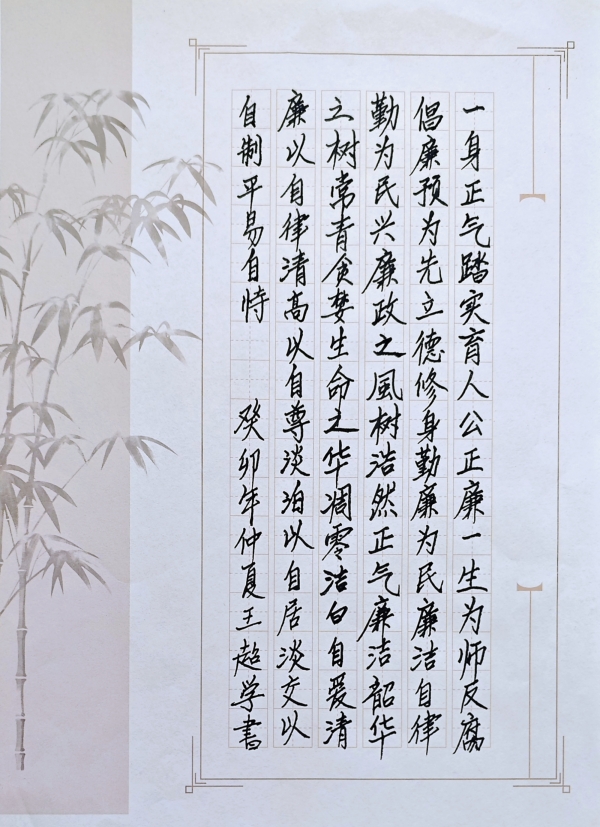 一身正气踏实育人公正廉一生为师反腐
倡廉预为先立德修身勤廉为民廉洁自律
勤为民兴廉政之風树浩然正气廉洁韶华
之树常青贪婪生命之华凋零洁白自爱清
廉以自律清高以自尊淡泊以自居淡交以
自制平易自恃 癸卯年仲夏王超学書